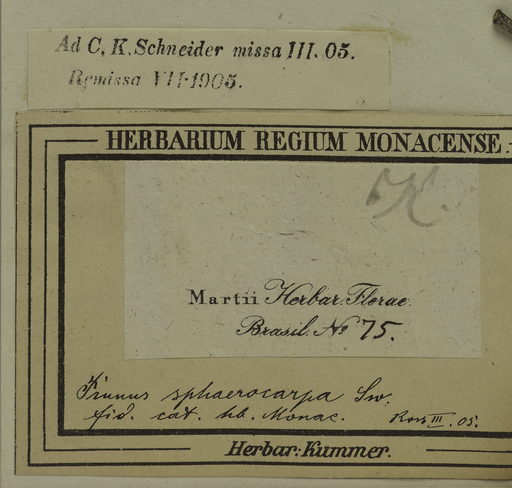 Ad C. K. Schneider missa III. 05.
Remissa VII·1905.
HERBARIUM REGIUM MONACENSE.
K.
Martii Herbar. Florae
Brasil. No 75.
Prunus sphaerocarpa Sw.
fid. cat. hb. Monac. Ross III. 05.
Herbar: Kummer.